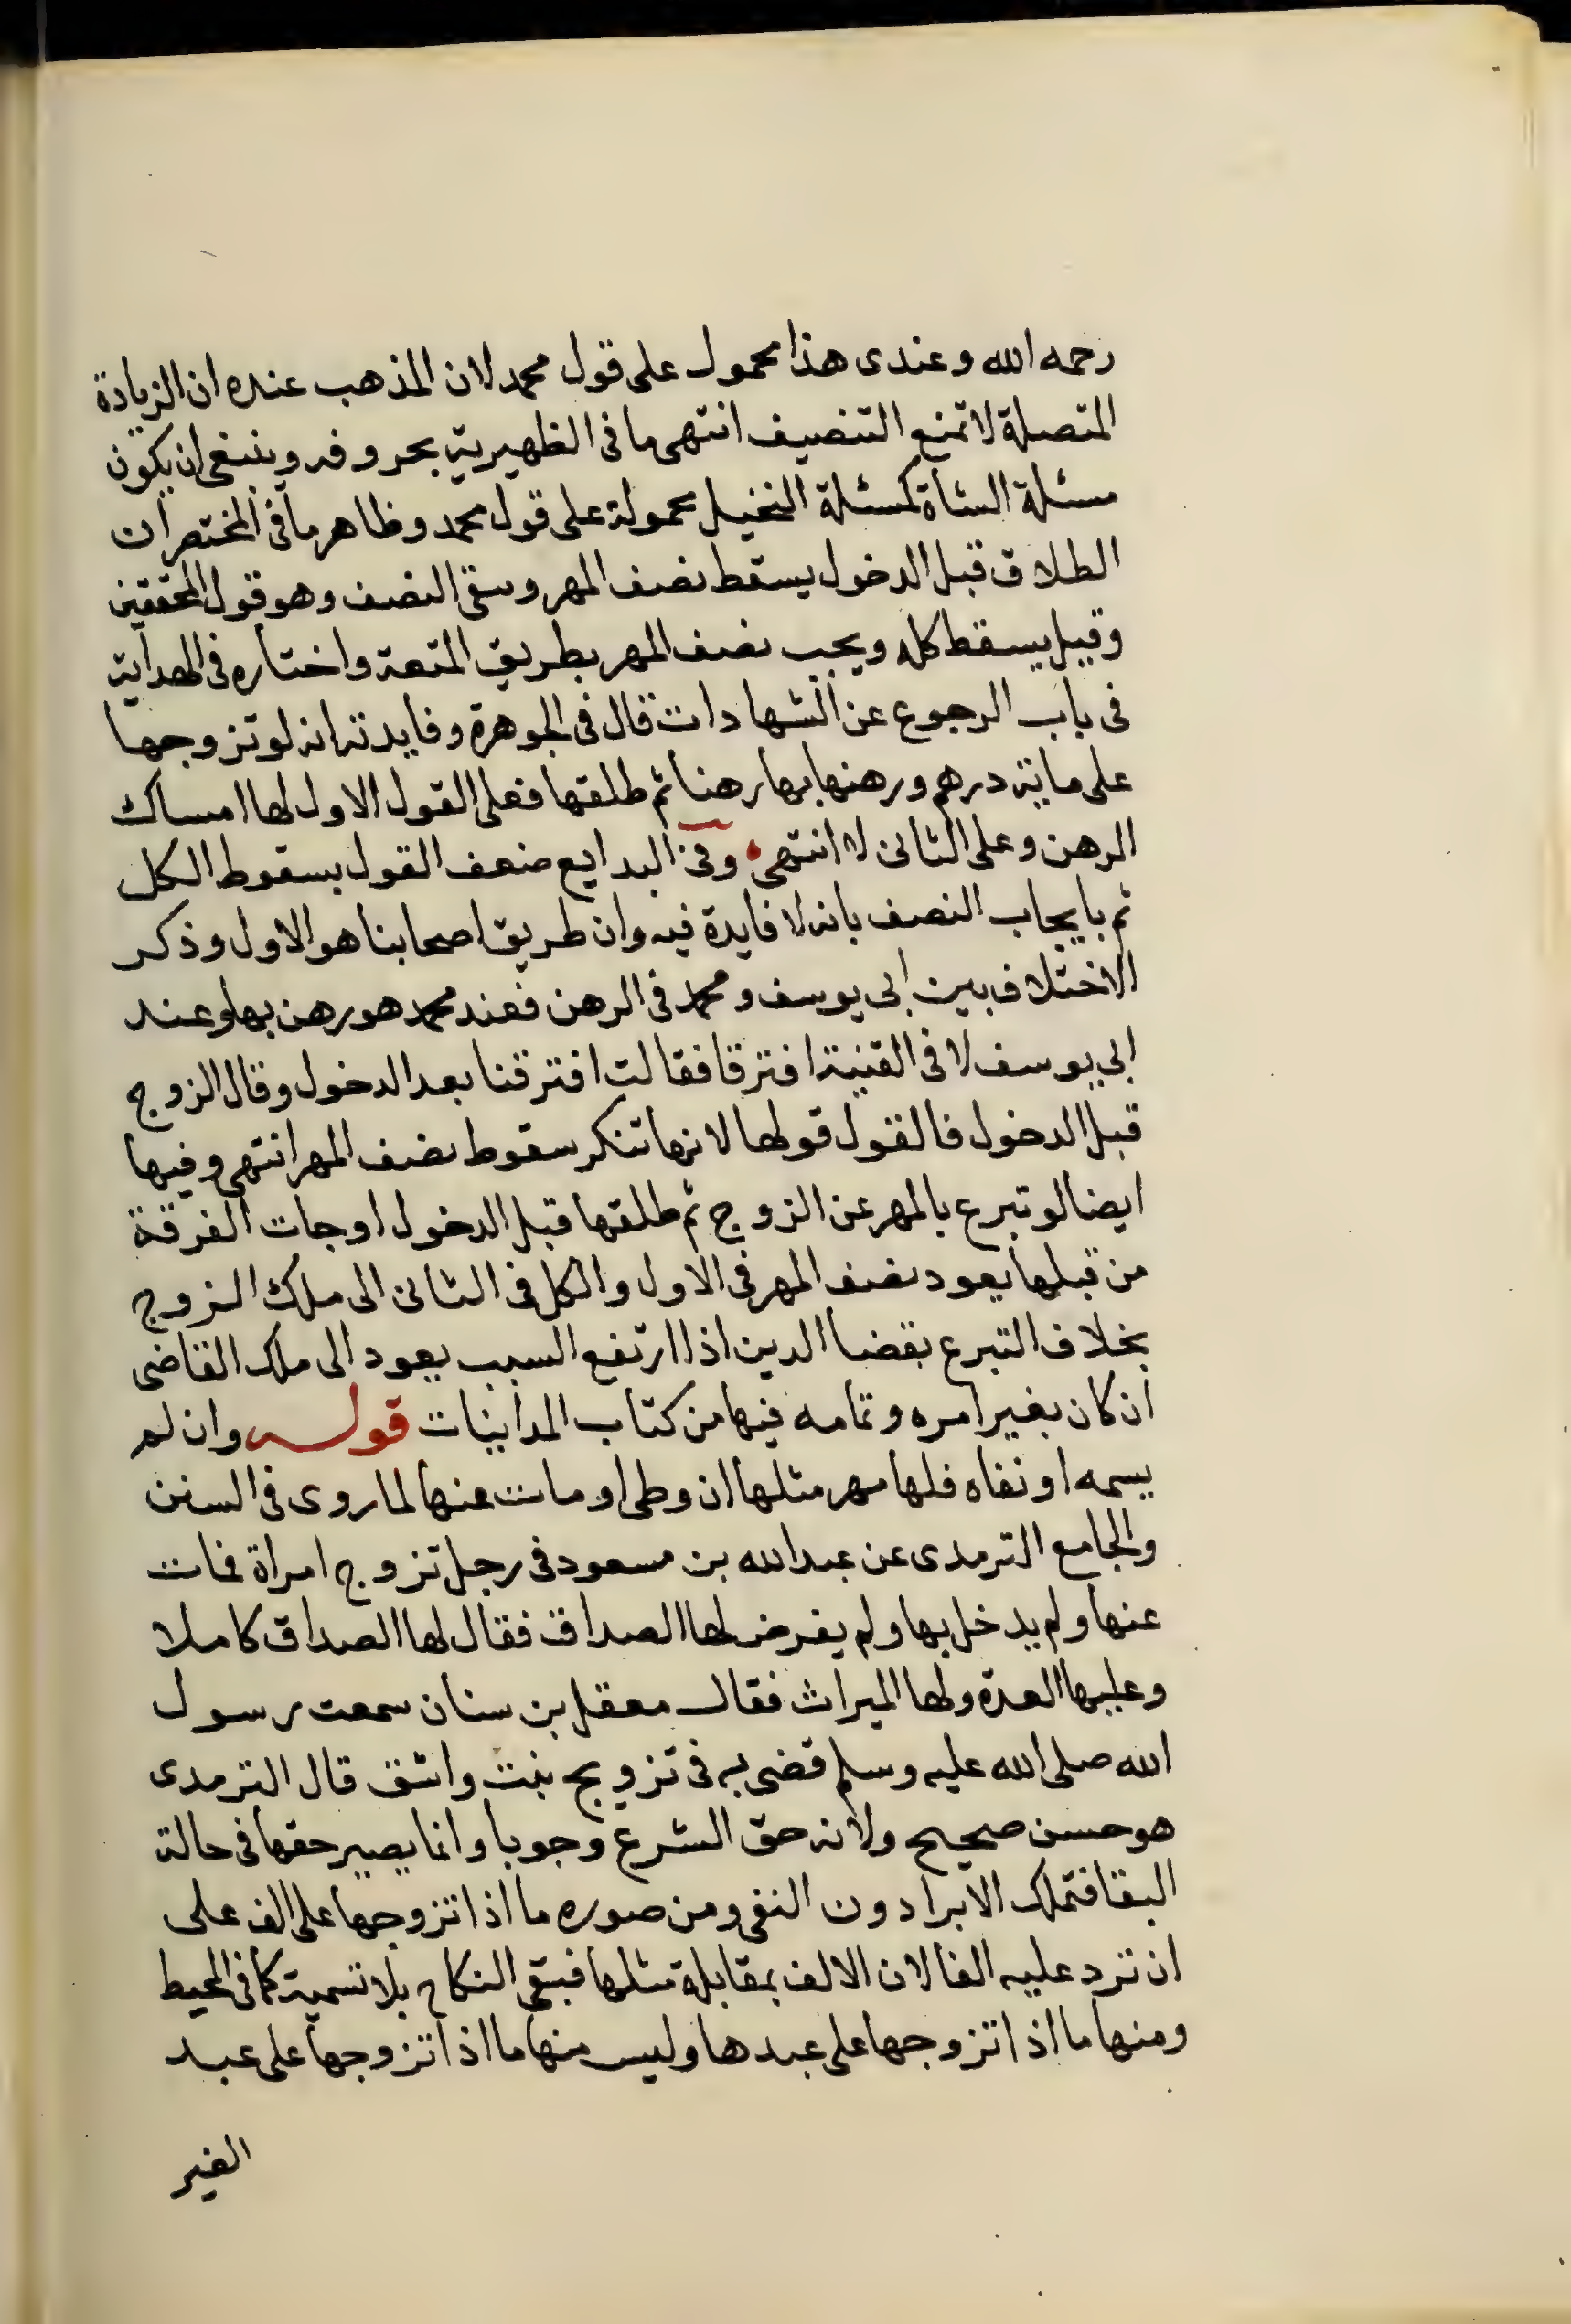 رحمه الله وعندى هذا محمول على قول محمد لان المذهب عنده ان الزيادة
المتصلة لا تمنع التنصيف انتهى ما فى الظهيرية بحروفه وينبغى ان يكون
مسئلة الشاة كمسئلة النخيل محمولة على قول محمد وظاهر ما فى المختصر ان
الطلاق قبل الدخول يسقط نصف المهر وسقى النصف وهو قول المحققين
وقيل يسقط كله ويجب نصف المهر بطريق المتعة واختاره فى الهداية
فى باب الرجوع عن الشهادات قال فى الجوهرة وفايدته انه لو تزوجها
على ماية درهم ورهنها بها رهنا ثم طلقها فعلى القول الاول لها امساك
الرهن وعلى الثانى لا انتهى وفى البدايع ضعف القول بسقوط الكل
ثم بايجاب النصف بانه لا فايدة فيه وان طريق اصحابنا هو الاول وذكر
الاختلاف بين ابى يوسف ومحمد فى الرهن فعند محمد هو رهن بها وعند
ابى يوسف لا فى القنية افترقا فقالت افترقنا بعد الدخول وقال الزوج
قبل الدخول فالقول قولها لانها تنكر سقوط نصف المهر انتهى وفيها
ايضا لو تبرع بالمهر عن الزوج ثم طلقها قبل الدخول او جات الفرقة
من قبلها يعود نصف المهر فى الاول والكل فى الثانى الى ملك الزوج
بخلاف التبرع بقضا الدين اذا ارتفع السبب يعود الى ملك القاضى
ان كان بغير امره وتمامه فيها من كتاب المداينات قوله وان لم
يسمه او نفاه فلها مهر مثلها ان وطى او مات عنها لما روى فى السنن
والجامع الترمدى عن عبد الله بن مسعود فى رجل تزوج امراة فمات
عنها ولم يدخل بها ولم يفرض لها الصداق فقال لها الصداق كاملا
وعليها العدة ولها الميراث فقال معقل بن سنان سمعت رسول
الله صلى الله عليه وسلم قضى به فى تزويج بنت واشق قال الترمدى
هو حسن صحيح ولانه حق الشرع وجوبا وانما يصير حقها فى حالة
البقا فتملك الابرا دون النفى ومن صوره ما اذا تزوجها على الف على
ان ترد عليه الفا لان الالف بمقابلة مثلها فبقى النكاح بلا تسمية كما فى المحيط
ومنها ما اذا تزوجها على عبدها وليس منها ما اذا تزوجها على عبد
الغير